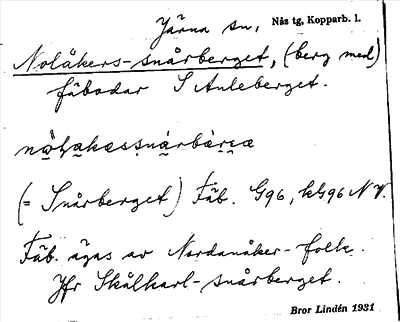 Järna sn, Nås tg, Kopparb. l.
Nolåkers-snårberget, (berg med)
fäbodar S Anleberget.
(= Snårberget) Fäb. G96, hG96 NV.
Fäb. ägas av Nordanåker-folk.
Jfr Skålkarl-snårberget.
Bror Lindén 1931